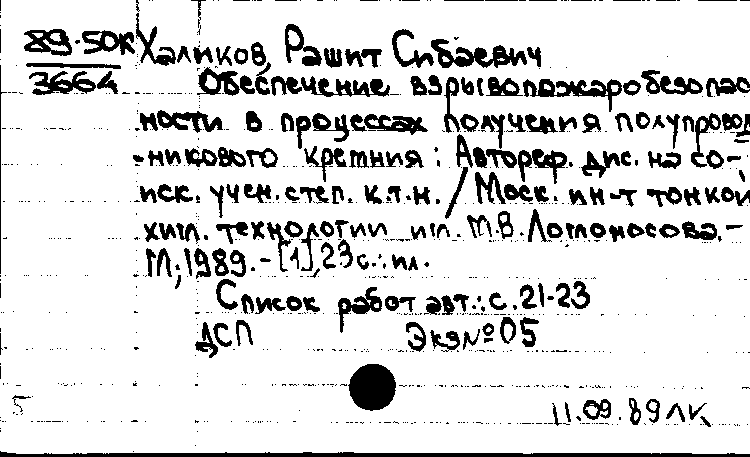 89-50к Халиков, Рашит Сибаевич
3664 Обеспечение взрывопожаробезопас
ности в процессах получения полупровод
-никового кремния: Автореф. дис. на со-
иск. учен. степ. к.т.н. / Моск. ин-т тонкой
хим. технологии им. М.В. Ломоносова. -
М., 1989. - [1], 23 с.: ил.
Список работ авт.: с. 21-23
ДСП Экз № 05
5 11.09.89 ЛК